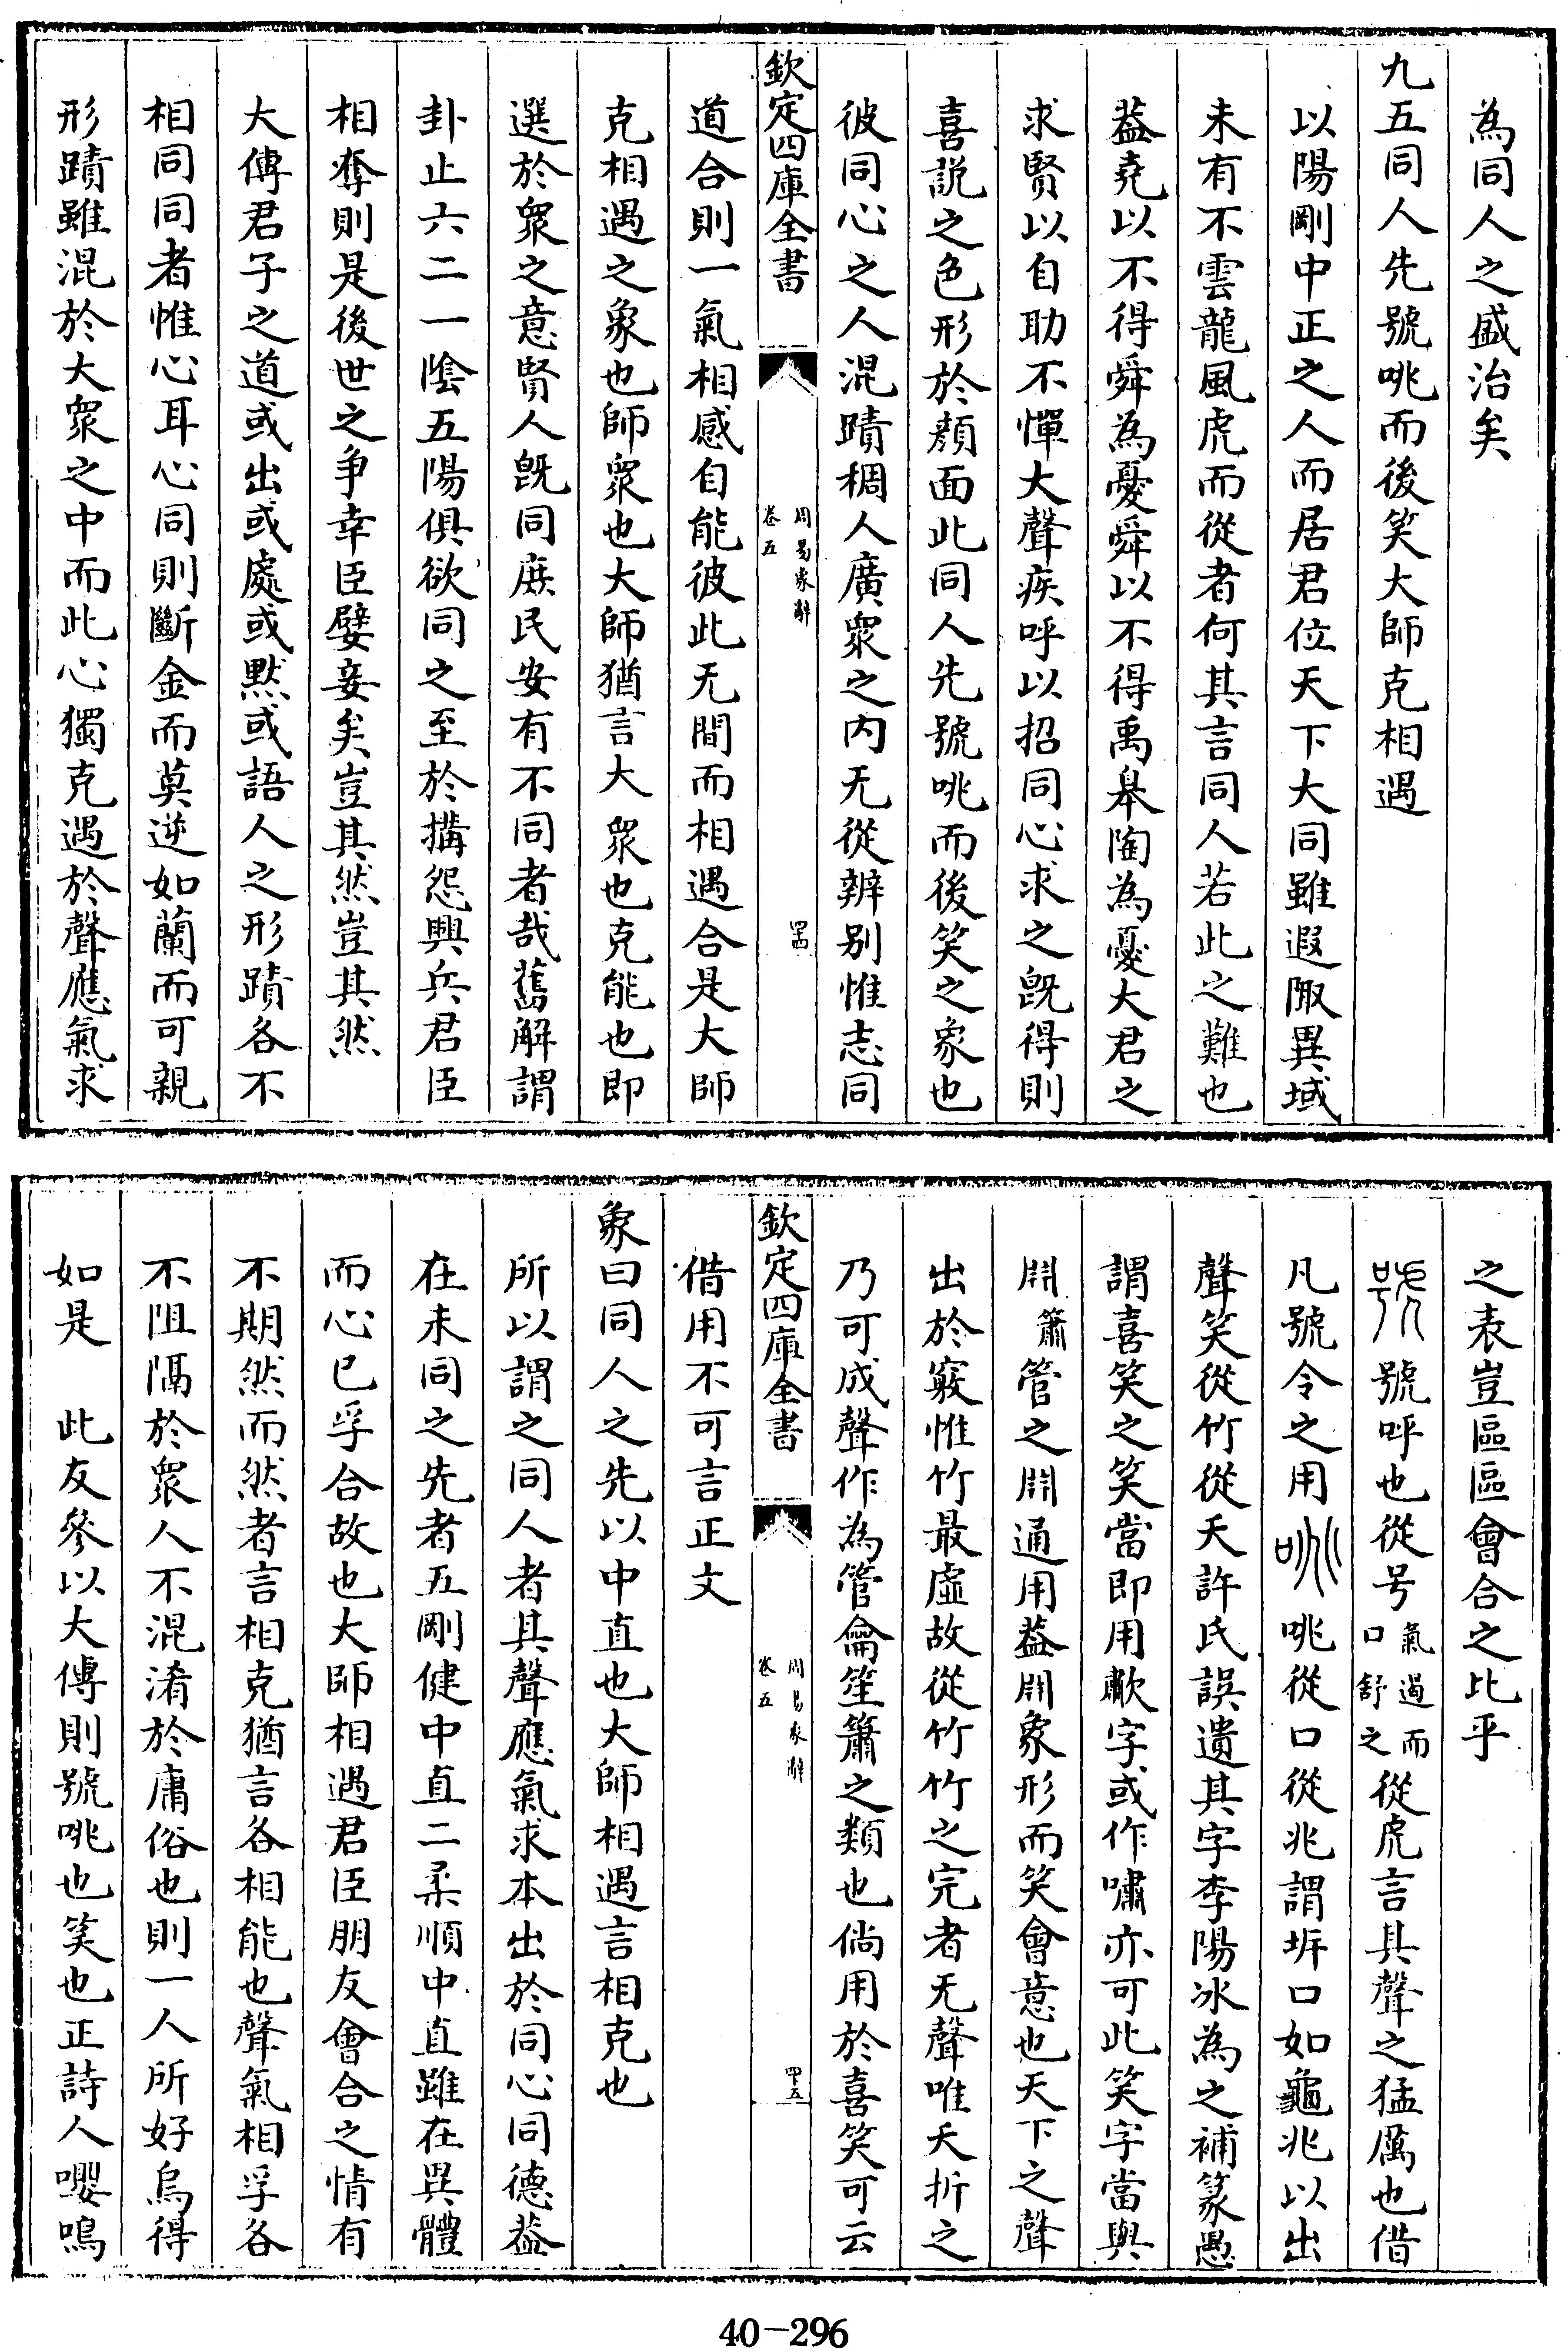 為同人之盛治矣
九五同人先號咷而後笑大師克相遇
以陽剛中正之人而居君位天下大同雖遐陬異域
未有不雲龍風虎而從者何其言同人若此之難也
葢堯以不得舜為憂舜以不得禹臯陶為憂大君之
求賢以自助不憚大聲疾呼以招同心求之既得則
喜説之色形於顔面此同人先號咷而後笑之象也
彼同心之人混蹟稠人廣衆之内无從辨别惟志同
欽定四庫全書
周易象辭
卷五
四十四
道合則一氣相感自能彼此无間而相遇合是大師
克相遇之象也師衆也大師猶言大衆也克能也即
選於衆之意賢人既同庶民安有不同者哉舊解謂
卦止六二一隂五陽俱欲同之至於搆怨興兵君臣
相奪則是後世之爭幸臣嬖妾矣豈其然豈其然
大傳君子之道或出或處或黙或語人之形蹟各不
相同同者惟心耳心同則斷金而莫逆如蘭而可親
形蹟雖混於大衆之中而此心獨克遇於聲應氣求
之表豈區區會合之比乎
號呼也從号氣遏而口舒之從虎言其聲之猛厲也借
凡號令之用 咷從口從兆謂坼口如龜兆以出
聲笑從竹從夭許氏誤遺其字李陽冰為之補篆愚
謂喜笑之笑當即用歗字或作嘯亦可此笑字當與
閞簫管之閞通用葢閞象形而笑會意也天下之聲
出於竅惟竹最虛故從竹竹之完者无聲唯夭折之
乃可成聲作為管龠笙簫之類也倘用於喜笑可云
欽定四庫全書
周易象辭
卷五
四十五
借用不可言正文
象曰同人之先以中直也大師相遇言相克也
所以謂之同人者其聲應氣求本出於同心同德葢
在未同之先者五剛健中直二柔順中直雖在異體
而心已孚合故也大師相遇君臣朋友會合之情有
不期然而然者言相克猶言各相能也聲氣相孚各
不阻隔於衆人不混淆於庸俗也則一人所好烏得
如是 此友參以大傳則號咷也笑也正詩人嚶鳴
40-296